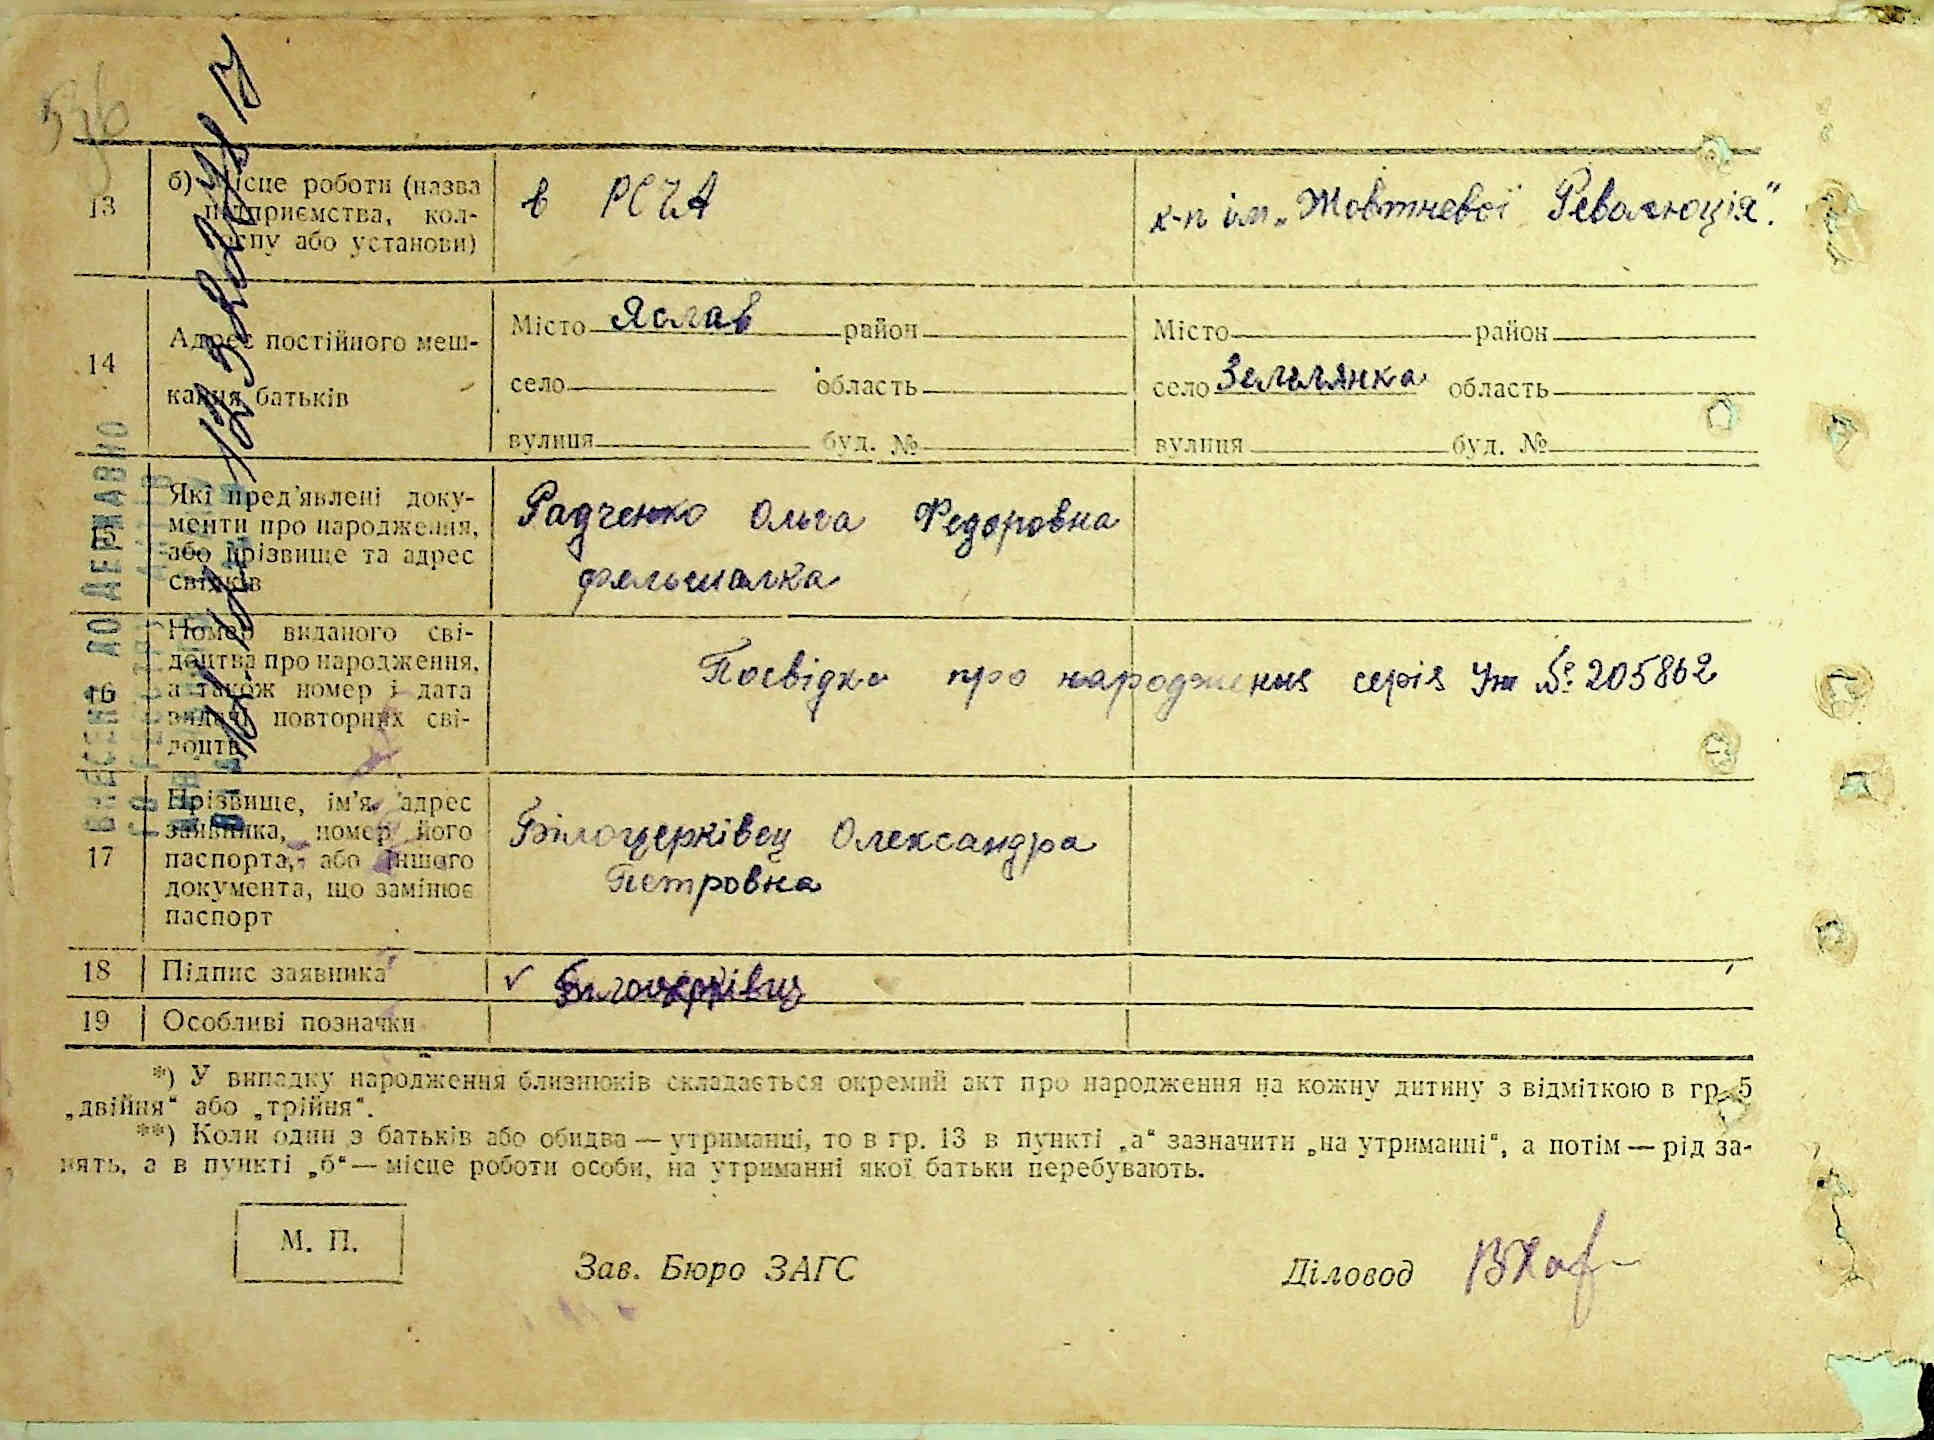 13
б) Місце роботи (назва
підприємства, кол-
госпу або установи)
в РСЧА
к-п ім. „Жовтневої Революція".
14
Адрес постійного меш-
кання батьків
Місто Яслав район
село область
вулиця буд. №
Місто район
село Землянка область
вулиця буд. №
15
Які пред'явлені доку-
менти про народження,
або прізвище та адрес
свідків
Радченко Ольга Федоровна
фельшалка
16
Номер виданого сві-
доцтва про народження,
а також номер і дата
видачі повторних сві-
доцтв
Посвідка про народження серія Уж № 205862
17
Прізвище, ім'я, адрес
заявника, номер його
паспорта, або іншого
документа, що замінює
паспорт
Білоцерківец Олександра
Петровна
18 Підпис заявника
Білоцерківец
19 Особливі позначки
*) У випадку народження близнюків складається окремий акт про народження на кожну дитину з відміткою в гр. 5
„двійня“ або „трійня“.
**) Коли один з батьків або обидва — утриманці, то в гр. 13 в пункті „а“ зазначити „на утриманні“, а потім — рід за-
нять, а в пункті „б“ — місце роботи особи, на утриманні якої батьки перебувають.
М. П.
Зав. Бюро ЗАГС
Діловод
ВНЕСЕНО ДО ДЕРЖАВНО